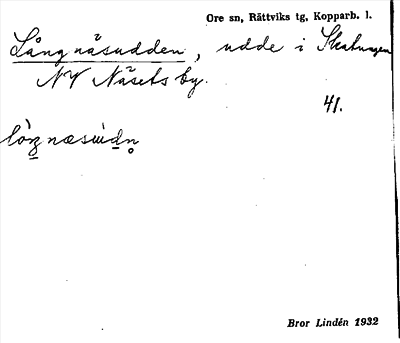 Ore sn, Rättviks tg, Kopparb. l.
Långnäsudden, udde i Skattungen
NV Näsets by.
41.
Bror Lindén 1932